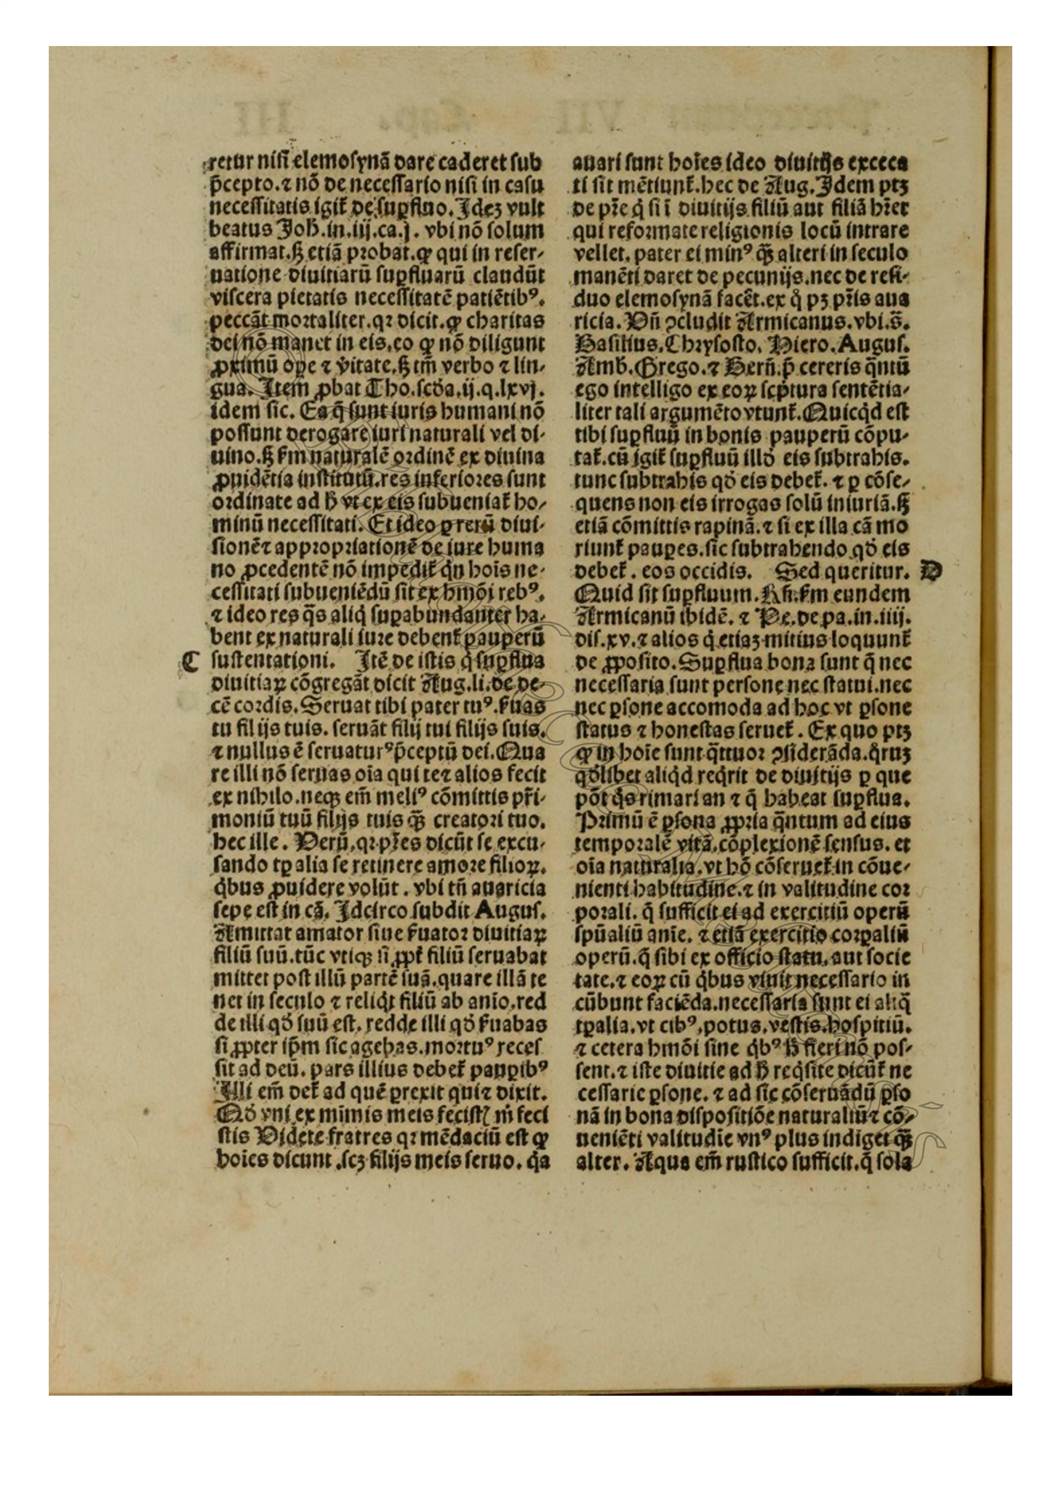 retur nisi elemosynā dare caderet sub
p̄cepto.⁊ nō de necessario nisi in casu
necessitatis igit᷑ de suꝑfluo. Ideꝫ vult
beatus Joh̄.in.iij.ca.j. vbi nō solum
affirmat.sꝫ etiā probat.ꝙ qui in reser-
uatione diuitiarū suꝑfluarū claudūt
viscera pietatis necessitatē patiētibꝰ.
peccāt mortaliter.qꝛ dicit.ꝙ charitas
dei nō manet in eis.eo ꝙ nō diligunt
ꝓximū oꝑe ⁊ v̄itate.sꝫ tm̄ verbo ⁊ lin-
gua. Item ꝓbat Tho.scd̄a.ij.q.lxvj.
idem sic. Ea q̄ sunt iuris humani nō
possunt derogare iuri naturali vel di-
uino.sꝫ s̄m naturalē ordinē ex diuina
ꝓuidētia institutū.res inferiores sunt
ordinate ad h̄ vt ex eis subueniat᷑ ho-
minū necessitati. Et ideo ꝑ rerū diui-
sionē⁊ appropriationē de iure huma
no ꝓcedentē nō impedit᷑ qn̄ hois ne-
cessitati subueniēdū sit ex hmōi rebꝰ.
⁊ ideo res q̄s aliq̄ suꝑabundanter ha-
bent ex naturali iure debent᷑ pauperū
C sustentationi. Itē de istis q̄ suꝑflua
diuitiaꝝ cōgregāt dicit Aug.li.de de-
cē cordis. Seruat tibi pater tuꝰ. s̄uas
tu filijs tuis. seruāt filij tui filijs suis.
⁊ nullus ē seruaturꝰ p̄ceptū dei. Qua
re illi nō seruas oīa qui te⁊ alios fecit
ex nihilo.neqꝫ em̄ meliꝰ cōmittis pr̄i-
moniū tuū filijs tuis qꝫ̄ creatori tuo.
hec ille. Verū.qꝛ pr̄es dicūt se excu-
sando tꝑalia se retinere amore filioꝝ.
q̇bus ꝓuidere volūt. vbi tn̄ auaricia
sepe est in cā. Idcirco subdit Augus.
Amittat amator siue s̄uator diuitiaꝝ
filiū suū.tūc vtiqꝫ si ꝓpt᷑ filiū seruabat
mittet post illū partē suā.quare illā te
net in seculo ⁊ reliq̇t filiū ab anīo.red
de illi qd̄ suū est. redde illi qd̄ s̄uabas
si ꝓpter ip̄m sic agebas.mortuꝰ reces
sit ad deū. pars illius debet᷑ pauꝑibꝰ
Illi em̄ det᷑ ad quē ꝑrexit qui⁊ dixit.
Qd̄ vni ex minimis meis fecistꝭ m̄ feci
stis Videte fratres qꝛ mēdaciū est ꝙ
hoīes dicunt.scꝫ filijs meis seruo. q̇a
auari sunt hoīes ideo diuitijs exceca
ti sit mētiunt᷑.hec de Aug. Idem ptꝫ
de pr̄e q̇ si ī diuitijs filiū aut filiā hr̄et
qui reformate religionis locū intrare
vellet. pater ei minꝰ qꝫ̄ alteri in seculo
manēti daret de pecunijs.nec de resi-
duo elemosynā facēt.ex q̇ pꝫ pr̄is aua
ricia. Vn̄ ꝯcludit Armicanus.vbi.s̄.
Basilius. Chrysosto. Hiero. Augus.
Amb. Grego.⁊ Bern̄.p̄ ceteris qn̄tū
ego intelligo ex eoꝝ scp̄tura sentētia-
liter tali argumēto vtunt᷑. Quicq̇d est
tibi suꝑfluū in bonis pauperū cōpu-
tat᷑. cū igit᷑ suꝑfluū illō eis subtrahis.
tunc subtrahis qd̄ eis debet᷑. ⁊ ꝑ cōse-
quens non eis irrogas solū iniuriā.sꝫ
etiā cōmittis rapinā.⁊ si ex illa cā mo
riunt᷑ pauꝑes.sic subtrahendo qd̄ eis
debet᷑. eos occidis. Sed queritur. D
Quid sit suꝑfluum. Rn̄.s̄m eundem
Armicanū ibidē. ⁊ Pe.de pa.in.iiij.
dis.xv.⁊ alios q̇ etiaꝫ mitius loquunt᷑
de ꝓposito. Suꝑflua bona sunt q̄ nec
necessaria sunt persone nec statui.nec
nec ꝑsone accomoda ad hoc vt ꝑsone
status ⁊ honestas seruet᷑. Ex quo ptꝫ
ꝙ in hoīe sunt q̄ttuor ꝯsiderāda.q̄ruꝫ
qd̄libet aliq̇d req̇rit de diuitijs ꝑ que
pōt q̇s rimari an ⁊ q̄ habeat suꝑflua.
Primū ē ꝑsona ꝓpria qn̄tum ad eius
temporalē vitā.cōplexionē sensus. et
oīa naturalia.vt hō cōseruet᷑ in cōue-
nienti habitudine.⁊ in valitudine cor
porali. q̄ sufficit ei ad exercitiū operū
spūaliū anīe. ⁊ etiā exercitio corꝑaliū
operū.q̄ sibi ex officio statu. aut socie
tate.⁊ eoꝝ cū q̇bus viuit necessario in
cūbunt faciēda.necessaria sunt ei aliq̄
tꝑalia.vt cibꝰ.potus.vestis.hospitiū.
⁊ cetera hmōi sine q̇bꝰ h̄ fieri nō pos-
sent.⁊ iste diuitie ad h̄ reqͥsite dicūt᷑ ne
cessarie ꝑsone. ⁊ ad sic cōseruādū ꝑso
nā in bona dispositiōe naturaliū⁊ cō-
ueniēti valitudīe vnꝰ plus indiget qꝫ̄
alter. Aqua em̄ rustico sufficit.q̄ sola